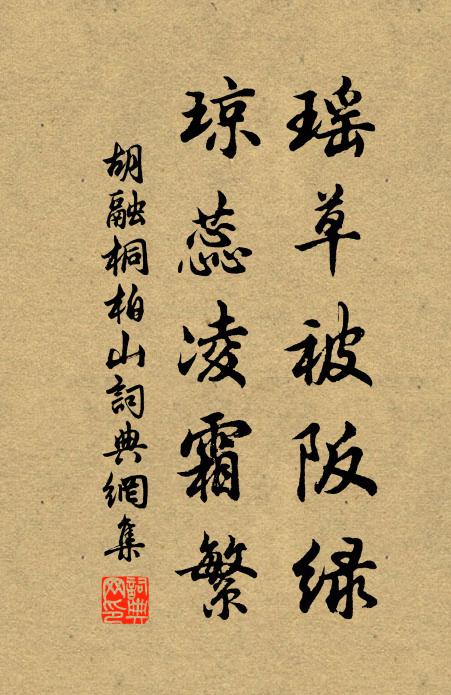 瑶草被阪绿
琼蕊凌霜繁
胡融桐柏山詞典網集
詞典网印